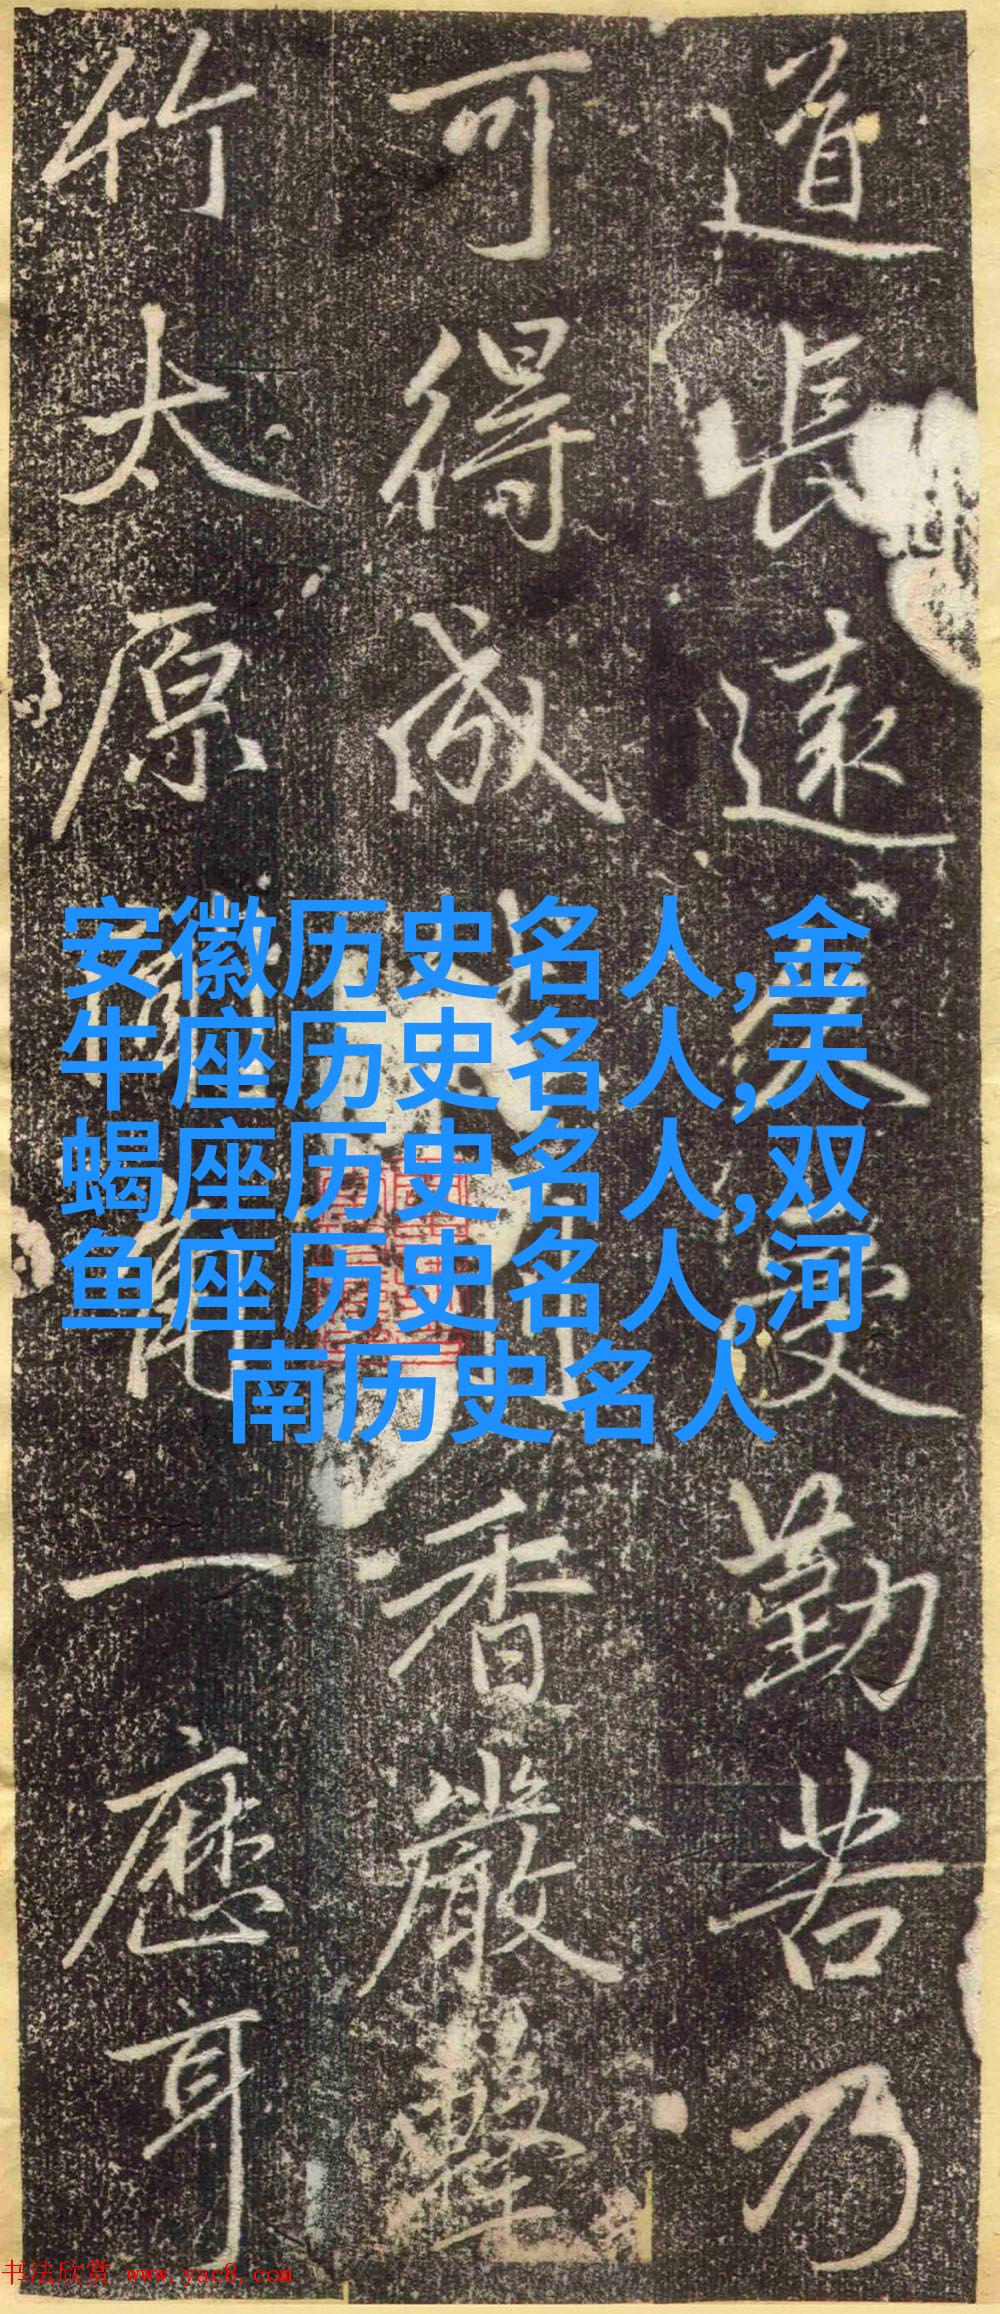 道長遠久受勤苦乃
可得成香嚴擊
竹太原一應耳
安徽历史名人,金
牛座历史名人,天
蝎座历史名人,双
鱼座历史名人,河
南历史名人
书法欣赏 www.yac8.com